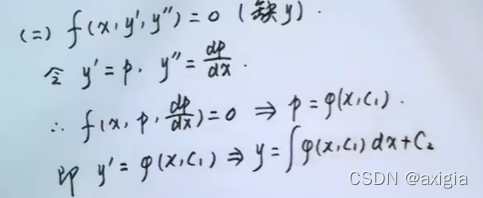 (二) f(x, y', y'') = 0 (缺y).
令 y' = p. y'' = dp/dx.
∴ f(x, p, dp/dx) = 0 ⇒ p = φ(x, C₁).
即 y' = φ(x, C₁) ⇒ y = ∫φ(x, C₁) dx + C₂
CSDN @axigia